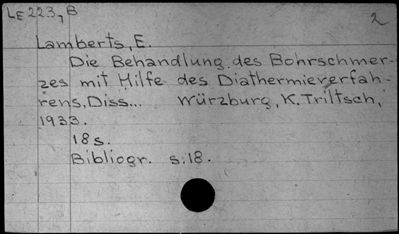 LE 223,B
2
Lamberts, E.
Die Behandlung des Bohrschmer-
zes mit Hilfe des Diathermieverfah-
rens, Diss... Würzburg, K. Triltsch,
1933.
18 s.
Bibliogr. s. 18.